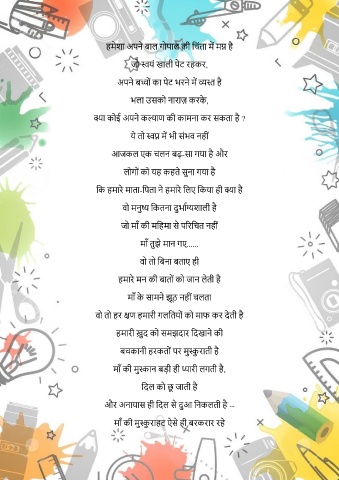 हमेशा अपने बाल गोपाल की चिंता में मग्न है
जो स्वयं खाली पेट रहकर,
अपने बच्चों का पेट भरने में व्यस्त है
भला उसको नाराज़ करके,
क्या कोई अपने कल्याण की कामना कर सकता है ?
ये तो स्वप्न में भी संभव नहीं
आजकल एक चलन बढ़-सा गया है और
लोगों को यह कहते सुना गया है
कि हमारे माता-पिता ने हमारे लिए किया ही क्या है
वो मनुष्य कितना दुर्भाग्यशाली है
जो माँ की महिमा से परिचित नहीं
माँ तुझे मान गए......
वो तो बिना बताए ही
हमारे मन की बातों को जान लेती है
माँ के सामने झूठ नहीं चलता
वो तो हर क्षण हमारी गलतियों को माफ कर देती है
हमारी ख़ुद को समझदार दिखाने की
बचकानी हरकतों पर मुस्कुराती है
माँ की मुस्कान बड़ी ही प्यारी लगती है,
दिल को छू जाती है
और अनायास ही दिल से दुआ निकलती है --
माँ की मुस्कुराहट ऐसे ही बरकरार रहे